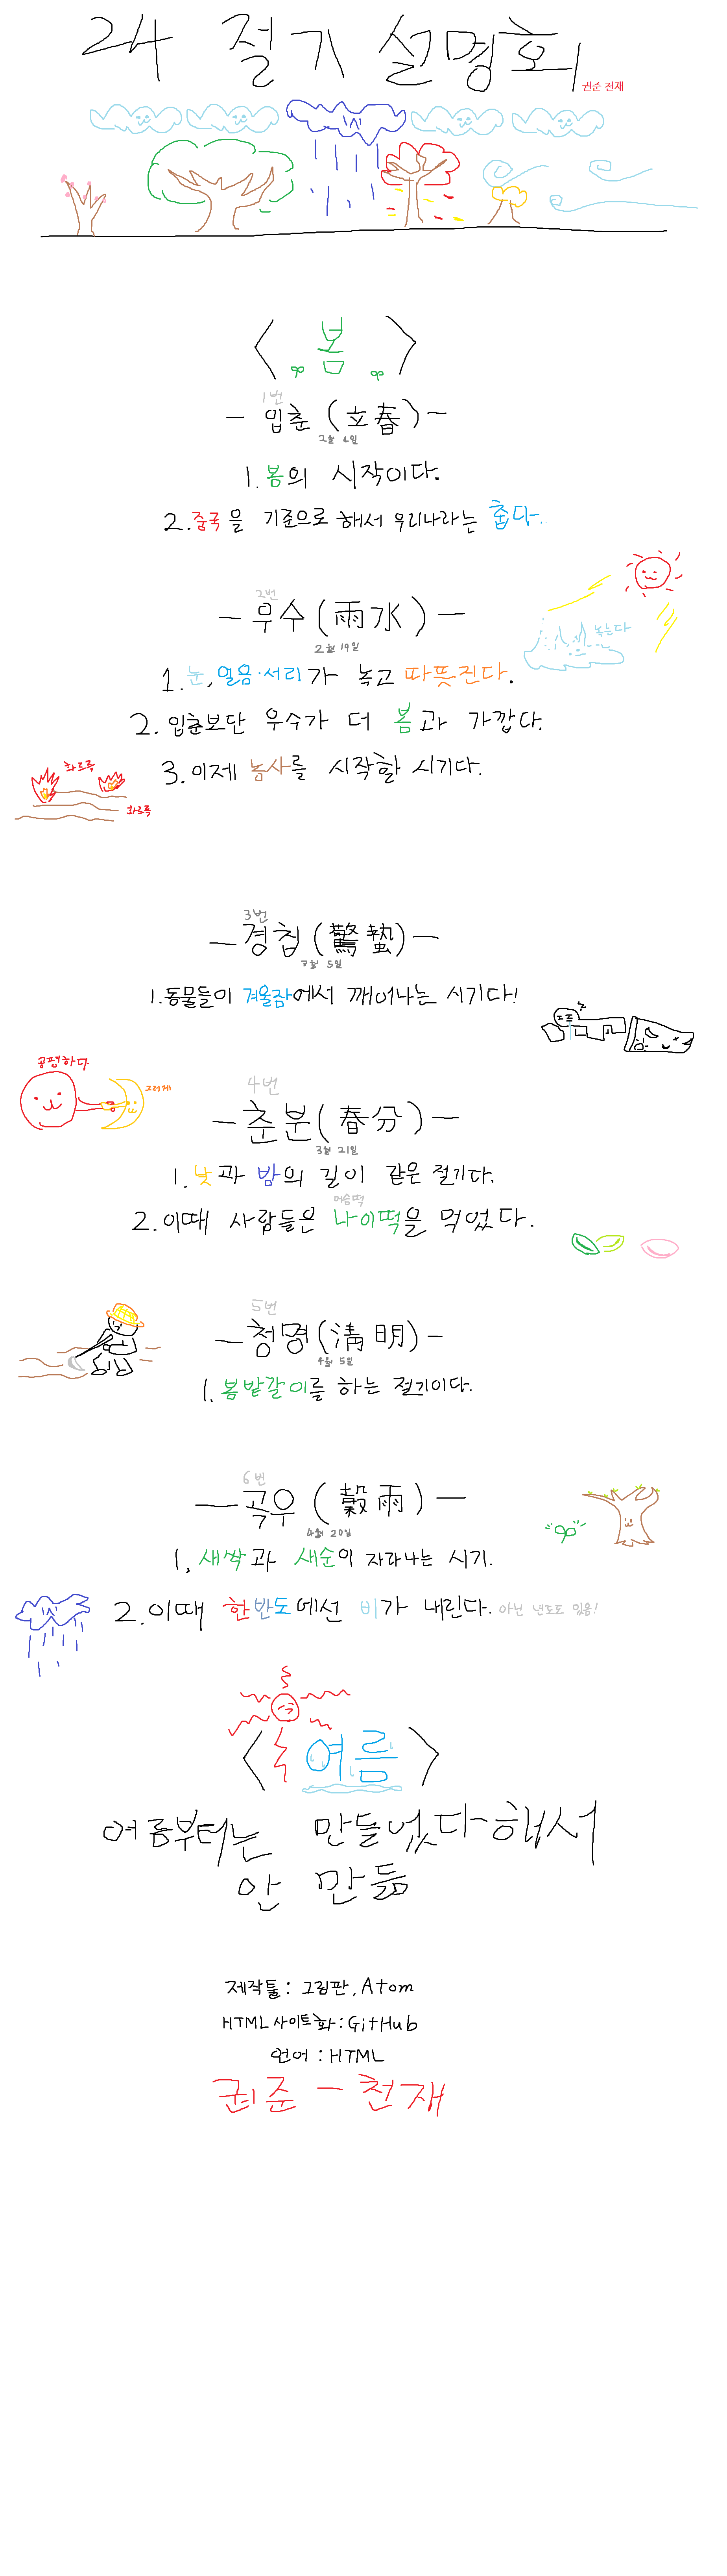 24 절기 설명회
권준 천재
< 봄 >
1번
- 입춘 (立春) -
2월 4일
1. 봄의 시작이다.
2. 중국을 기준으로 해서 우리나라는 춥다.
2번
- 우수 (雨水) -
2월 19일
녹는다
1. 눈, 얼음·서리가 녹고 따뜻진다.
2. 입춘보단 우수가 더 봄과 가깝다.
3. 이제 농사를 시작할 시기다.
화르륵
화르륵
3번
- 경칩 (驚蟄) -
3월 5일
1. 동물들이 겨울잠에서 깨어나는 시기다!
z
공평하다
그러게
4번
- 춘분 (春分) -
3월 21일
1. 낮과 밤의 길이 같은 절기다.
머슴떡
2. 이때 사람들은 나이떡을 먹었다.
5번
- 청명 (淸明) -
4월 5일
1. 봄밭갈이를 하는 절기이다.
6번
- 곡우 (穀雨) -
4월 20일
1, 새싹과 새순이 자라나는 시기.
2. 이때 한반도에선 비가 내린다. 아닌 년도도 있음!
< 여름 >
여름부터는 만들었다해서
안 만듦
제작툴: 그림판, Atom
HTML 사이트화: GitHub
언어 : HTML
권준 - 천재